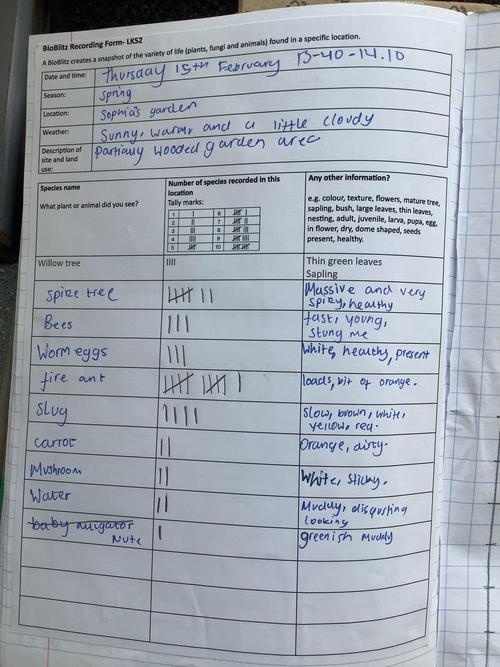 BioBlitz Recording Form- LKS2
A BioBlitz creates a snapshot of the variety of life (plants, fungi and animals) found in a specific location.
Date and time: Thursday 15th February 13-40-14.10
Season: Spring
Location: Sophia's garden
Weather: Sunny, warm, and a little cloudy
Description of site and land use: Partially wooded garden area
Species name
What plant or animal did you see?
Number of species recorded in this location
Tally marks:
1 | 6 |||| |
2 || 7 |||| ||
3 ||| 8 |||| |||
4 |||| 9 |||| ||||
5 |||| 10 |||| ||||
Any other information?
e.g. colour, texture, flowers, mature tree,
sapling, bush, large leaves, thin leaves,
nesting, adult, juvenile, larva, pupa, egg,
in flower, dry, dome shaped, seeds
present, healthy.
Willow tree |||| Thin green leaves
Sapling
spike tree |||| || Massive and very
spiky, healthy
Bees ||| fast, young,
stung me
Worm eggs ||| White, healthy, present
fire ant |||| |||| | loads, bit of orange.
Slug |||| Slow, brown, white,
yellow, red.
carrot || Orange, dirty.
Mushroom || White, sticky.
Water || Muddy, disgusting
looking
baby aligator
Nute | greenish muddy